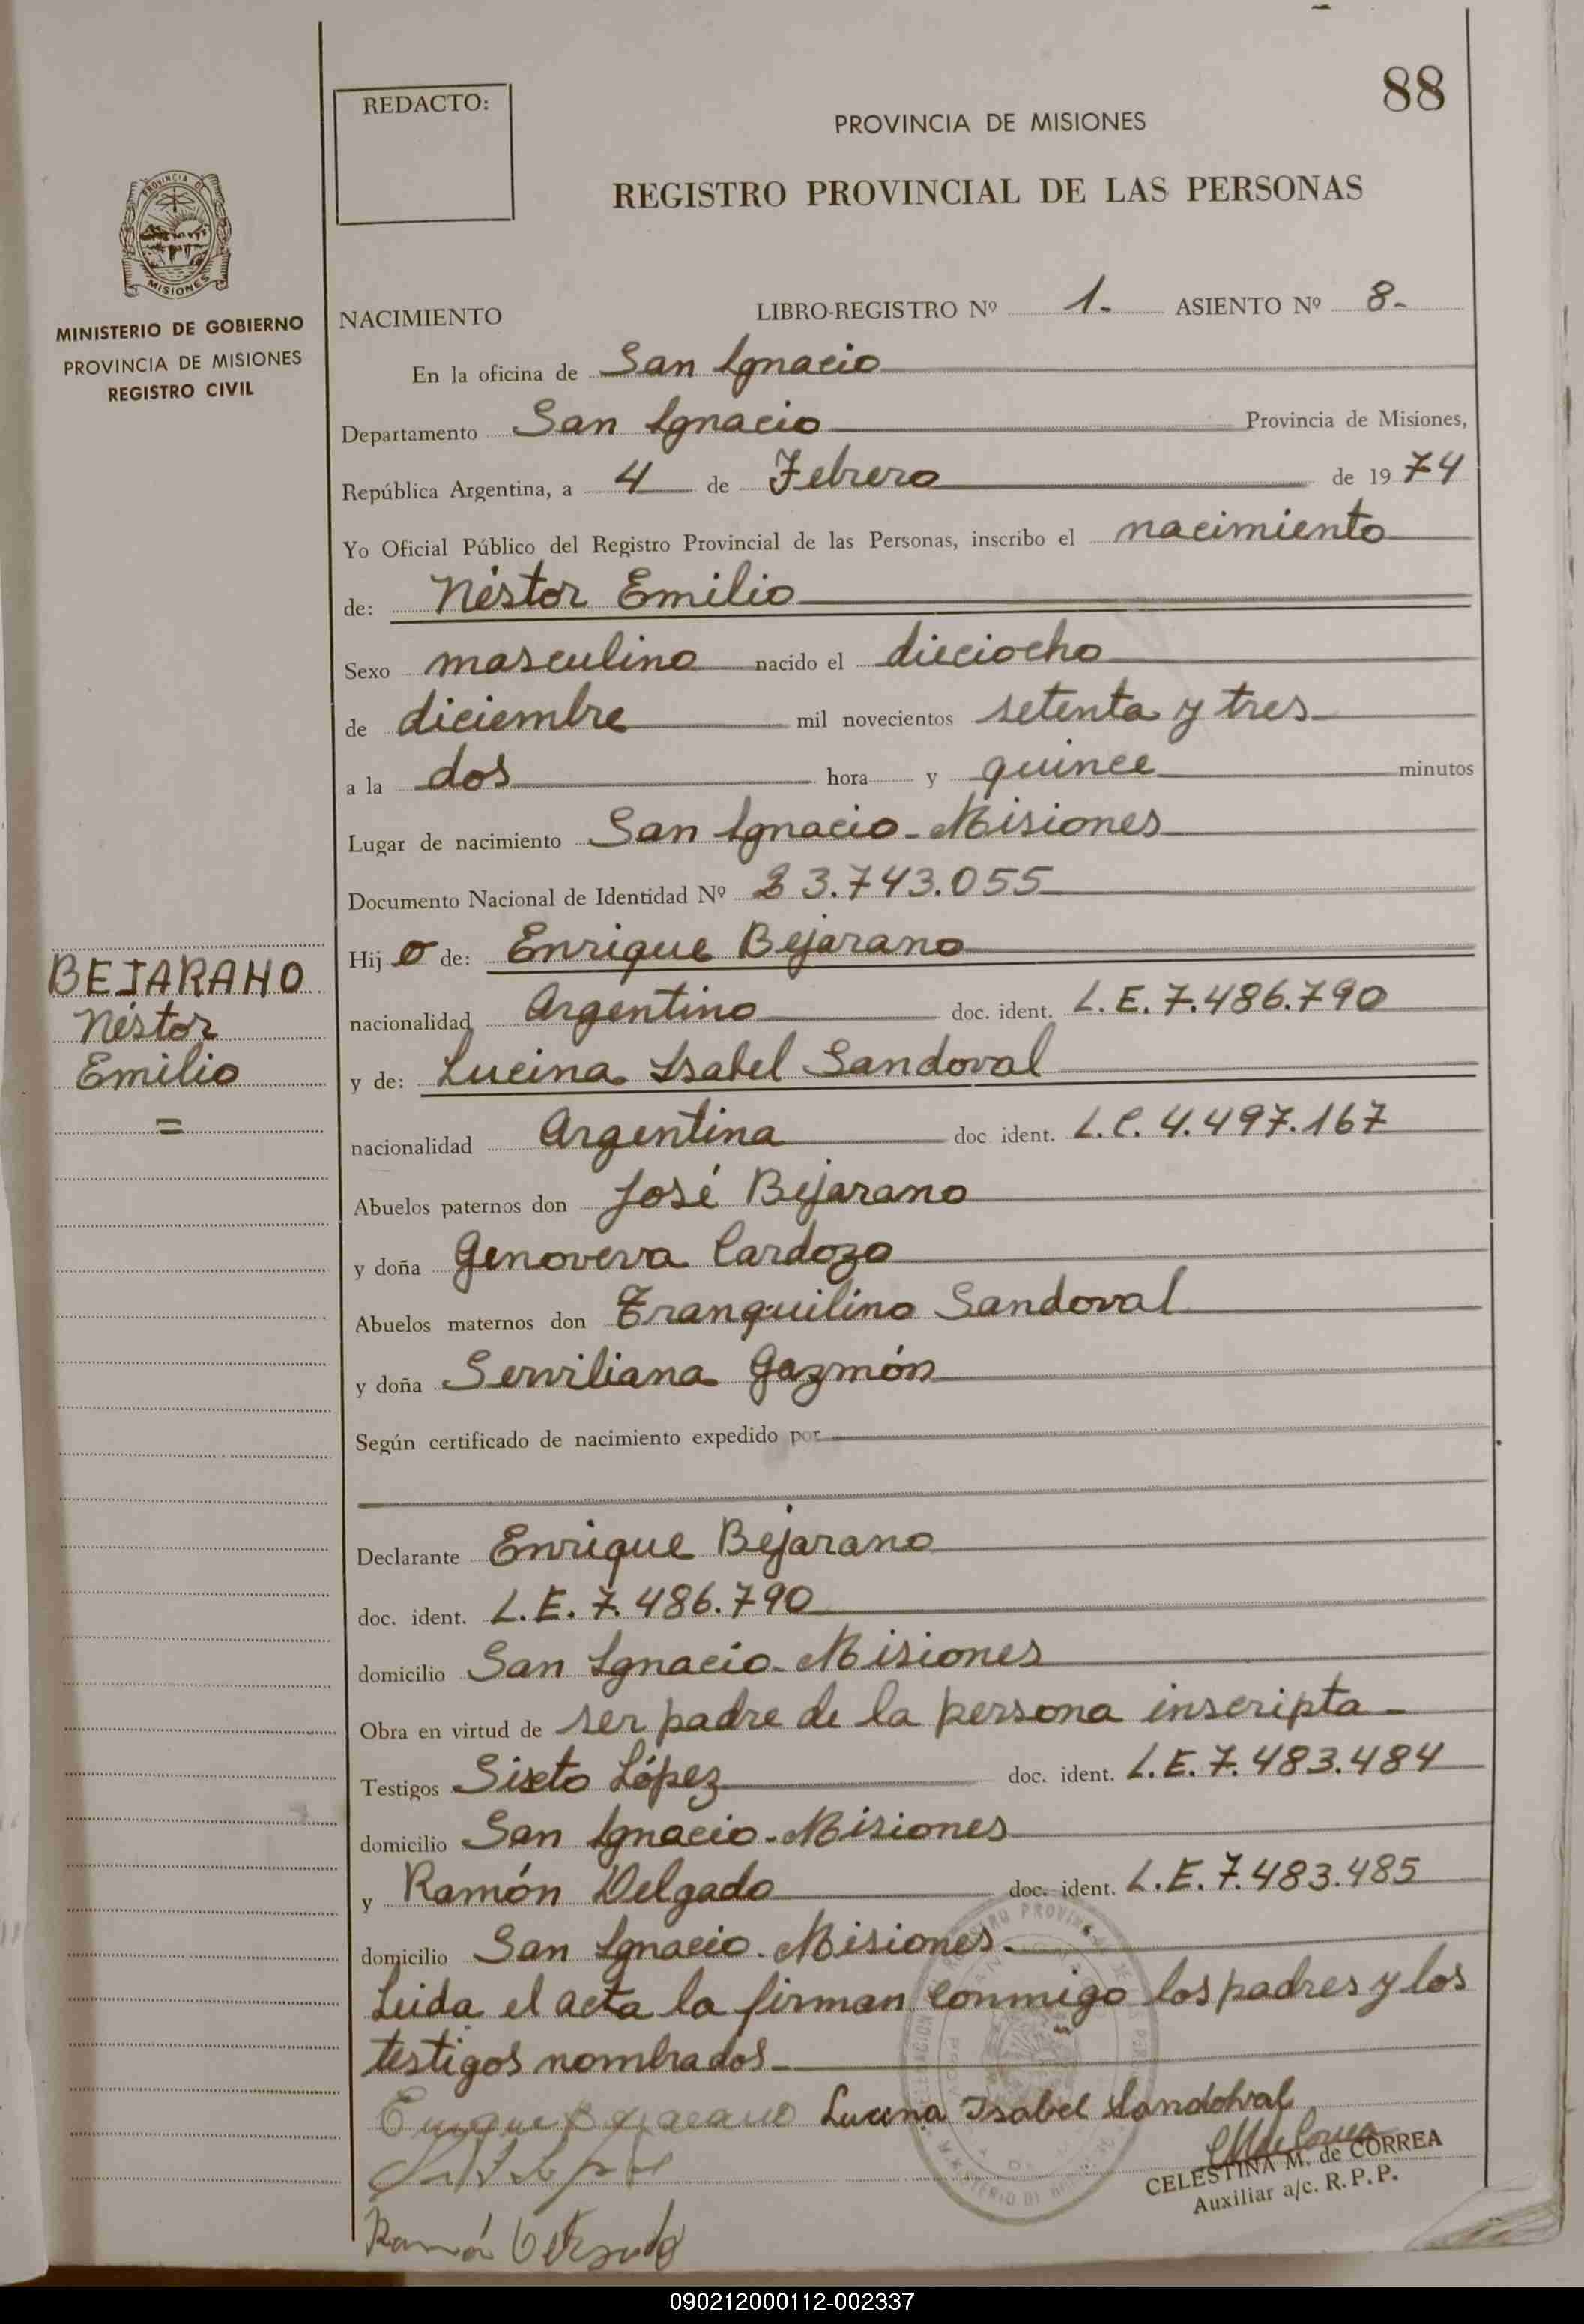 88
REDACTO:
PROVINCIA DE MISIONES
REGISTRO PROVINCIAL DE LAS PERSONAS
PROVINCIA DE
MISIONES
MINISTERIO DE GOBIERNO
PROVINCIA DE MISIONES
REGISTRO CIVIL
NACIMIENTO LIBRO-REGISTRO Nº 1- ASIENTO Nº 8-
En la oficina de San Ignacio
Departamento San Ignacio Provincia de Misiones,
República Argentina, a 4 de Febrero de 1974
Yo Oficial Público del Registro Provincial de las Personas, inscribo el nacimiento
de: Néstor Emilio
Sexo masculino nacido el dieciocho
de diciembre mil novecientos setenta y tres
a la dos hora y quince minutos
Lugar de nacimiento San Ignacio - Misiones
Documento Nacional de Identidad Nº 23.743.055
Hijo de: Enrique Bejarano
BEJARANO
Néstor
Emilio
=
nacionalidad Argentino doc. ident. L.E. 7.486.790
y de: Lucina Isabel Sandoval
nacionalidad Argentina doc ident. L.C. 4.497.167
Abuelos paternos don José Bejarano
y doña Genoveva Cardozo
Abuelos maternos don Tranquilino Sandoval
y doña Serviliana Gazmón
Según certificado de nacimiento expedido por
Declarante Enrique Bejarano
doc. ident. L.E. 7.486.790
domicilio San Ignacio - Misiones
Obra en virtud de ser padre de la persona inscripta -
Testigos Sixto López doc. ident. L.E. 7.483.484
domicilio San Ignacio - Misiones
y Ramón Delgado doc. ident. L.E. 7.483.485
domicilio San Ignacio - Misiones
Leida el acta la firman conmigo los padres y los
testigos nombrados
Enrique Bejarano Lucina Isabel Sandohval
CELESTINA M. de CORREA
Auxiliar a/c. R.P.P.
Ramón Delgado
090212000112-002337